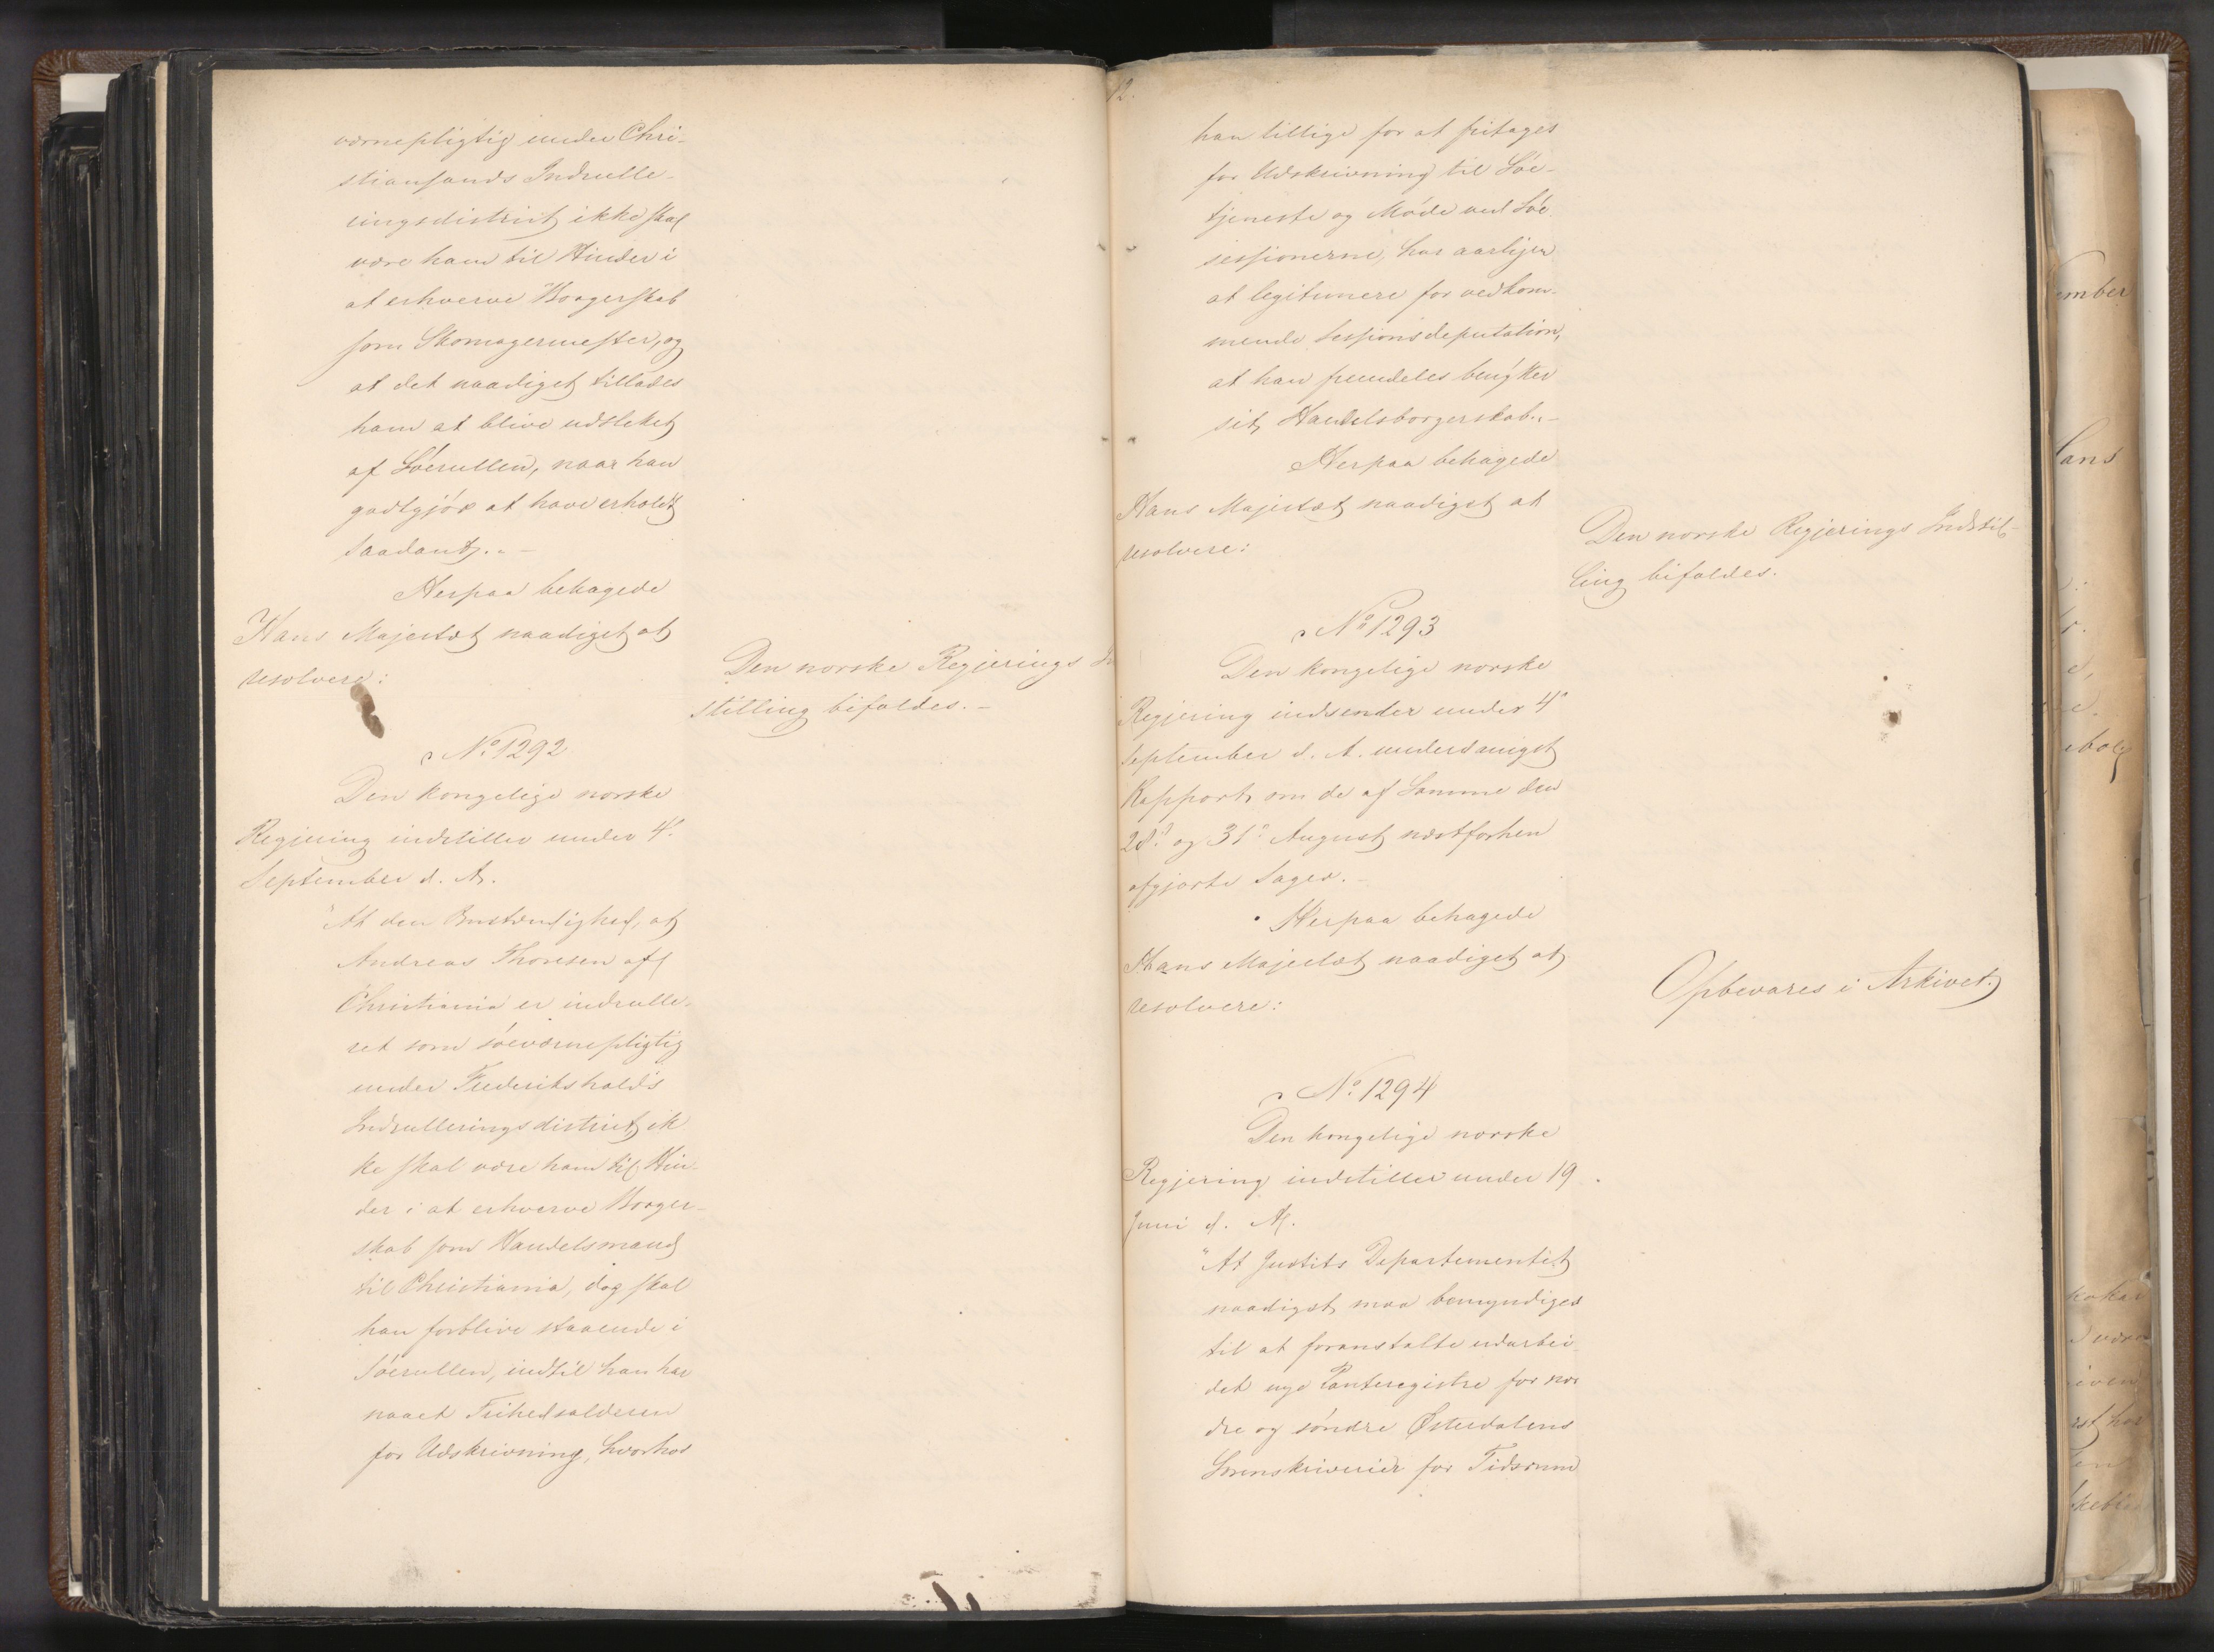 værnepligtig under Chri-
stiansands Indrulle-
ringsdistrict ikke skal
være ham til Hinder i
at erhverve Borgerskab
som Skomagermester, og
at det naadigst tillades
ham at blive udslettet
af Søerullen, naar han
godtgjør at have erholdt
saadant." -
Herpaa behagede
Hans Majestæt naadigst at
resolvere:
Den norske Regjerings In
stilling bifaldes. -
No 1292
Den kongelige norske
Regjering indstiller under 4de
September d. A.
"At den Omstændighed, at
Andreas Thoresen af
Christiania er indrulle-
ret som søeværnepligtig
under Frederikshalds
Indrulleringsdistrict ik
ke skal være ham til Hin-
der i at erhverve Borger-
skab som Handelsmand
til Christiania, dog skal
han forblive staaende i
Søerullen, indtil han har
naaet Frihedsalderen
for Udskrivning, hvorhos
12.
han tillige for at fritages
for Udskrivning til Søe-
tjeneste og Møde ved Søe
sessionerne, har aarligen
at legitimere for vedkom-
mende Sessionsdeputation,
at han fremdeles benytter
sit Handelsborgerskab." -
Herpaa behagede
Hans Majestæt naadigst at
resolvere:
Den norske Regjerings Indstil-
ling bifaldes.
No 1293
Den kongelige norske
Regjering indsender under 4de
September d. A. underdanigst
Rapport om de af Samme den
28de og 31te August næstforhen
afgjorte Sager. -
Herpaa behagede
Hans Majestæt naadigst at
resolvere:
Opbevares i Arkivet.
No 1294
Den kongelige norske
Regjering indstiller under 19
Juni d. A.
"At Justits Departementet
naadigst maa bemyndiges
til at foranstalte udarbei-
det nye Panteregistre for nor
dre og søndre Østerdalens
Sorenskriverier for Tidsrum